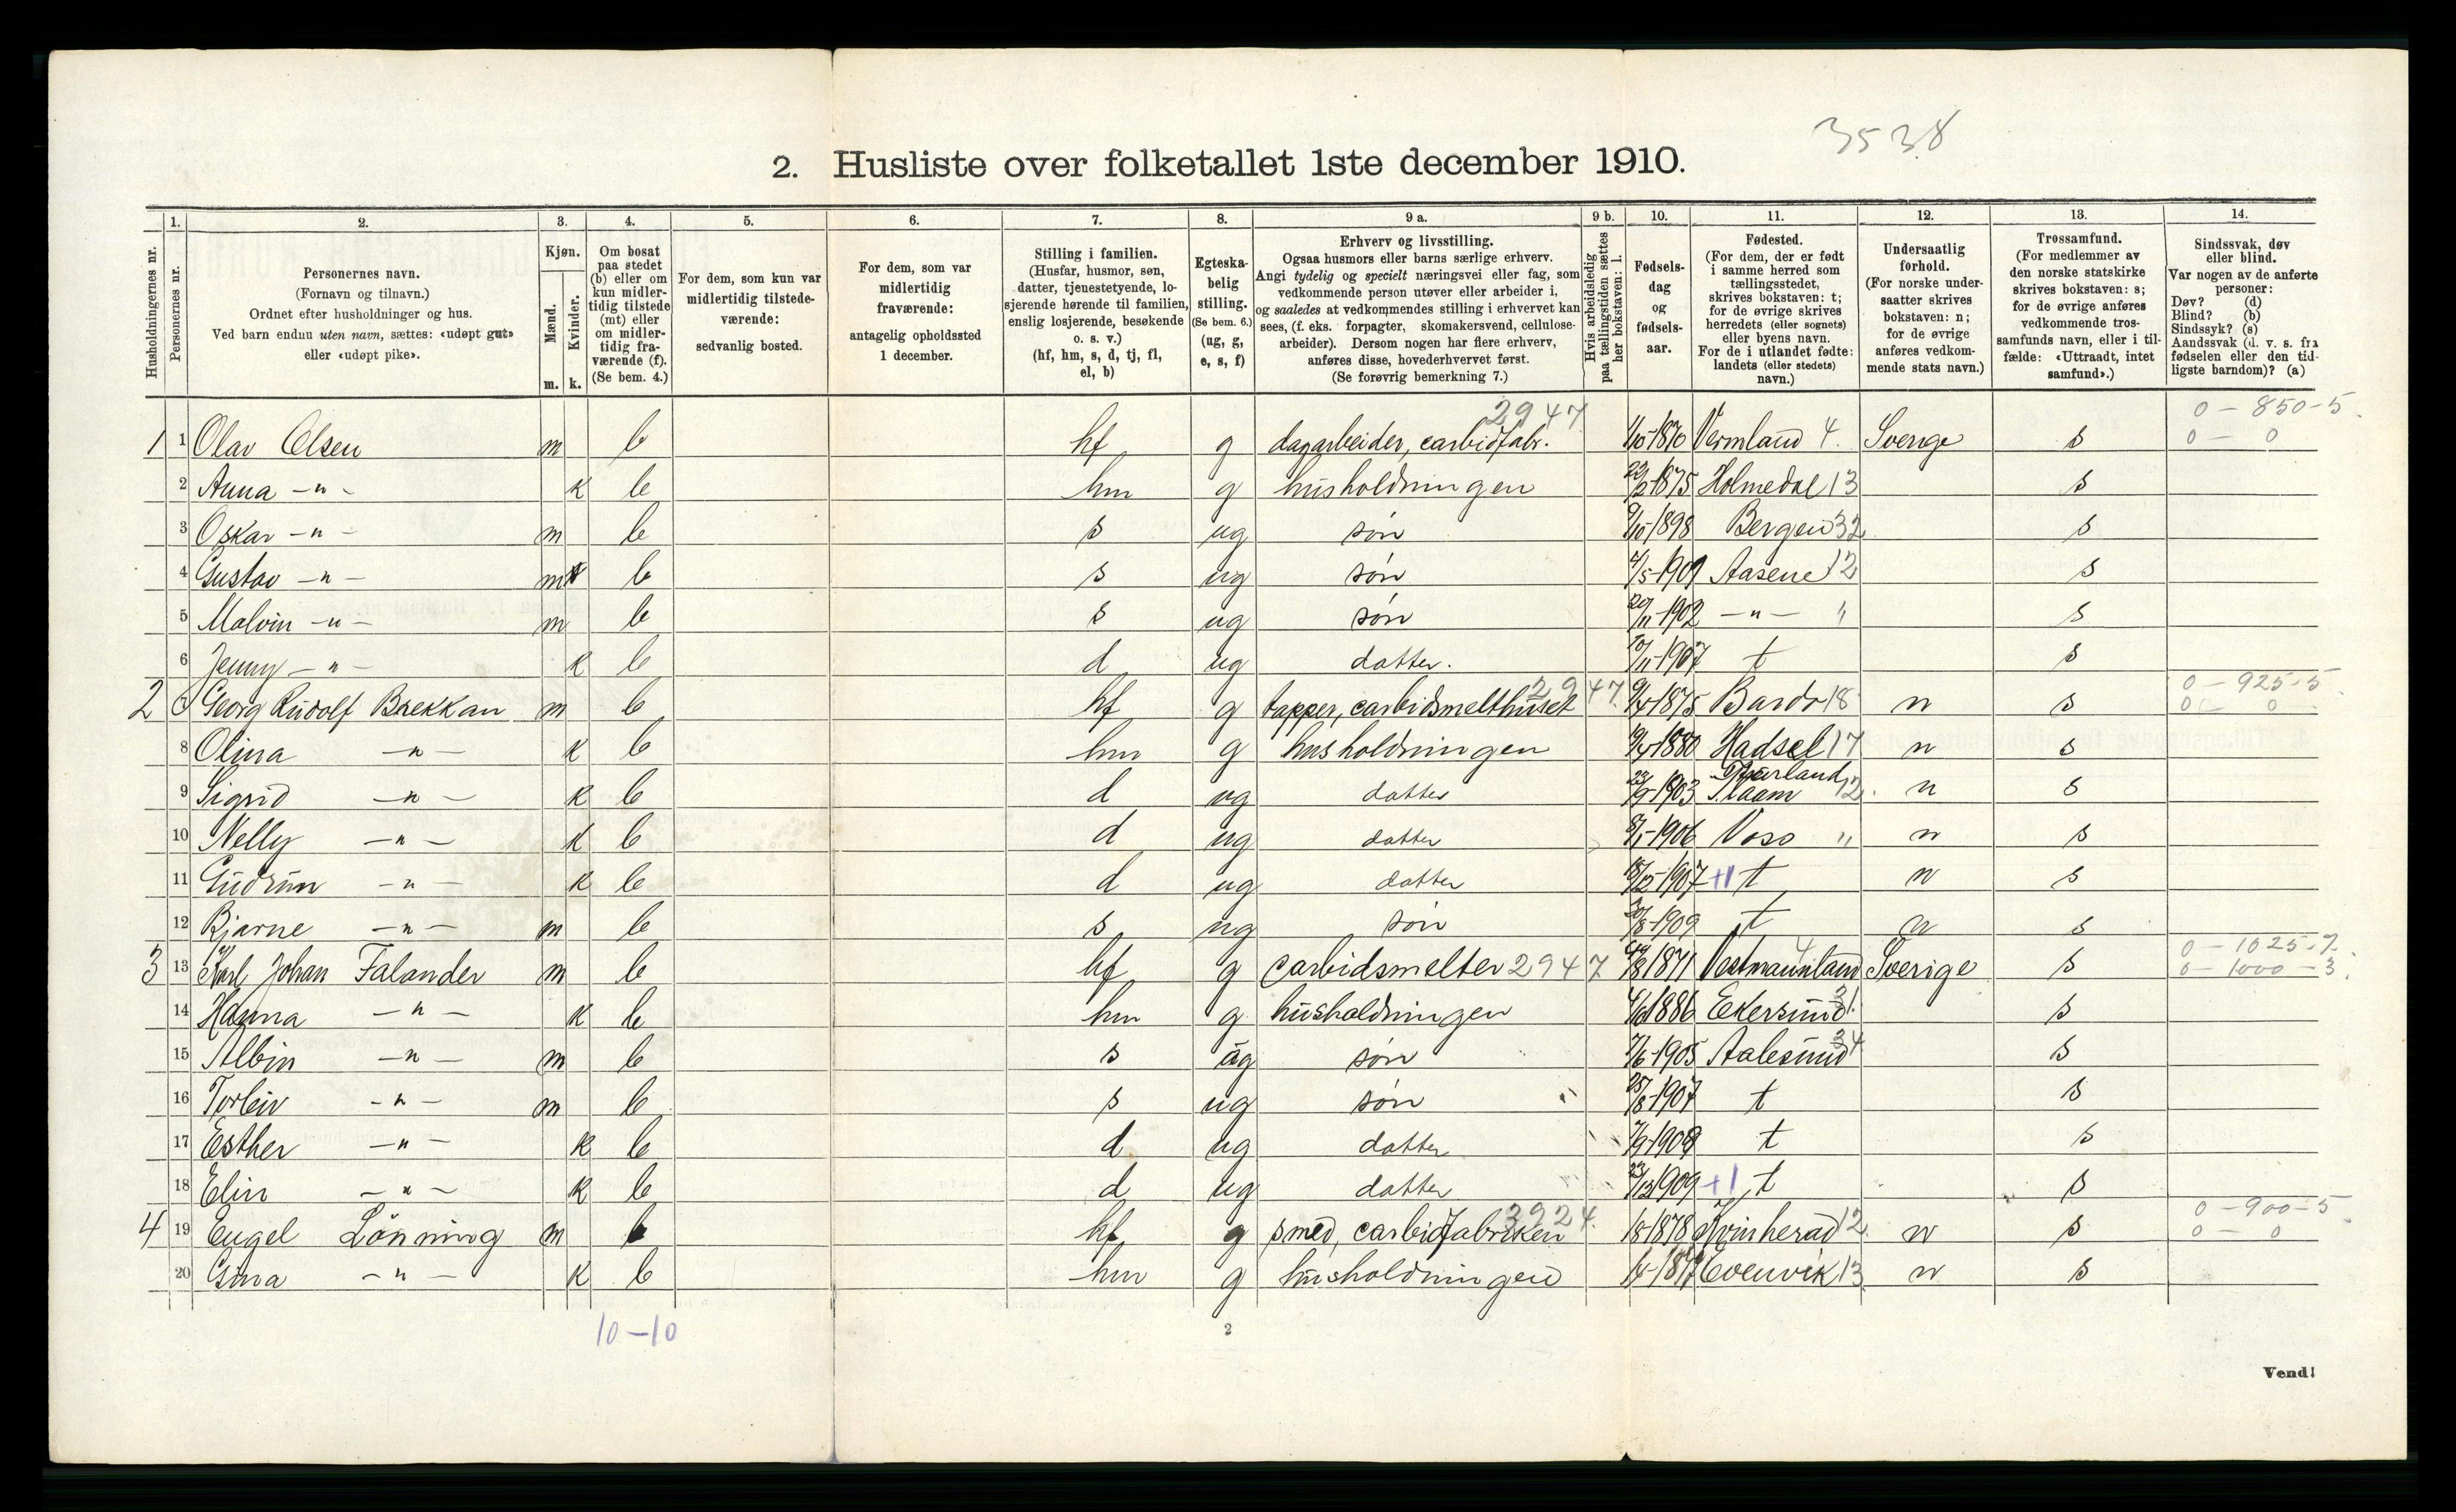 3538
2. Husliste over folketallet 1ste december 1910.
1. 2. 3. 4. 5. 6. 7. 8. 9 a. 9 b. 10. 11. 12. 13. 14.
Husholdningernes nr.
Personernes nr.
Personernes navn.
(Fornavn og tilnavn.)
Ordnet efter husholdninger og hus.
Ved barn endnu uten navn, sættes: «udøpt gut»
eller «udøpt pike».
Kjøn.
Mænd.
Kvinder.
m. k.
Om bosat
paa stedet
(b) eller om
kun midler-
tidig tilstede
(mt) eller
om midler-
tidig fra-
værende (f).
(Se bem. 4.)
For dem, som kun var
midlertidig tilstede-
værende:
sedvanlig bosted.
For dem, som var
midlertidig
fraværende:
antagelig opholdssted
1 december.
Stilling i familien.
(Husfar, husmor, søn,
datter, tjenestetyende, lo-
sjerende hørende til familien,
enslig losjerende, besøkende
o. s. v.)
(hf, hm, s, d, tj, fl,
el, b)
Egteska-
belig
stilling.
(Se bem. 6.)
(ug, g,
e, s, f)
Erhverv og livsstilling.
Ogsaa husmors eller barns særlige erhverv.
Angi tydelig og specielt næringsvei eller fag, som
vedkommende person utøver eller arbeider i,
og saaledes at vedkommendes stilling i erhvervet kan
sees, (f. eks. forpagter, skomakersvend, cellulose-
arbeider). Dersom nogen har flere erhverv,
anføres disse, hovederhvervet først.
(Se forøvrig bemerkning 7.)
Hvis arbeidsledig
paa tællingstiden sættes
her bokstaven: l.
Fødsels-
dag
og
fødsels-
aar.
Fødested.
(For dem, der er født
i samme herred som
tællingsstedet,
skrives bokstaven: t;
for de øvrige skrives
herredets (eller sognets)
eller byens navn.
For de i utlandet fødte:
landets (eller stedets)
navn.)
Undersaatlig
forhold.
(For norske under-
saatter skrives
bokstaven: n;
for de øvrige
anføres vedkom-
mende stats navn.)
Trossamfund.
(For medlemmer av
den norske statskirke
skrives bokstaven: s;
for de øvrige anføres
vedkommende tros-
samfunds navn, eller i til-
fælde: «Uttraadt, intet
samfund».)
Sindssvak, døv
eller blind.
Var nogen av de anførte
personer:
Døv? (d)
Blind? (b)
Sindssyk? (s)
Aandssvak (d. v. s. fra
fødselen eller den tid-
ligste barndom)? (a)
2947 0 - 850-5.
1 1 Olav Olsen m b hf g dagarbeider, carbidfabr. 1/10-1870 Vermland 4. Sverige s 0 - 0
2 Anna -"- k b hm g husholdningen 22/2 1875 Holmedal 13 s
3 Oskar -"- m b s ug søn 9/10-1898 Bergen 32 s
4 Gustav -"- m b s ug søn 4/5-1901 Aasene 12 s
5 Malvin -"- m b s ug søn 20/11-1902 -"- " s
6 Jenny -"- k b d ug datter. 10/11-1907 t s
2947. 0 - 925-5.
2 7 Georg Rudolf Brekkan m b hf g tapper, carbidsmelthuset 9/4-1875 Bardo 18 n s 0 - 0
8 Olina -"- k b hm g husholdningen 1880 Hadsel 17 n s
9 Sigrid -"- k b d ug datter 1903 Flaam 12. n s
10 Nelly -"- k b d ug datter 8/1-1906 Voss " n s
11 Gudrun -"- k b d ug datter 18/12-1907 +1 t n s
12 Bjarne -"- m b s ug søn 20/8-1909 t n s
0 - 1025-7.
3 13 Karl Johan Falander m b hf g carbidsmelter 2947 1871 Vestmannland 4 Sverige s 0 - 1000 - 3.
14 Hanna -"- k b hm g husholdningen 1886 Ekersund 31. s
15 Albin -"- m b s ug søn 7/6-1905 Aalesund 34 s
16 Torleiv -"- m b s ug søn 25/8-1907 t s
17 Esther -"- k b d ug datter 7/9-1908 t s
18 Elin -"- k b d ug datter 23/12 1909 +1 t s
3924. 0 - 900-5
4 19 Engel Lønning m b hf g smed, carbidfabriken 1/8-1878 Kvinherad 12. n s 0 - 0
20 Gina -"- k b hm g husholdningen Evenvik 13 n s
10-10
2
Vend!